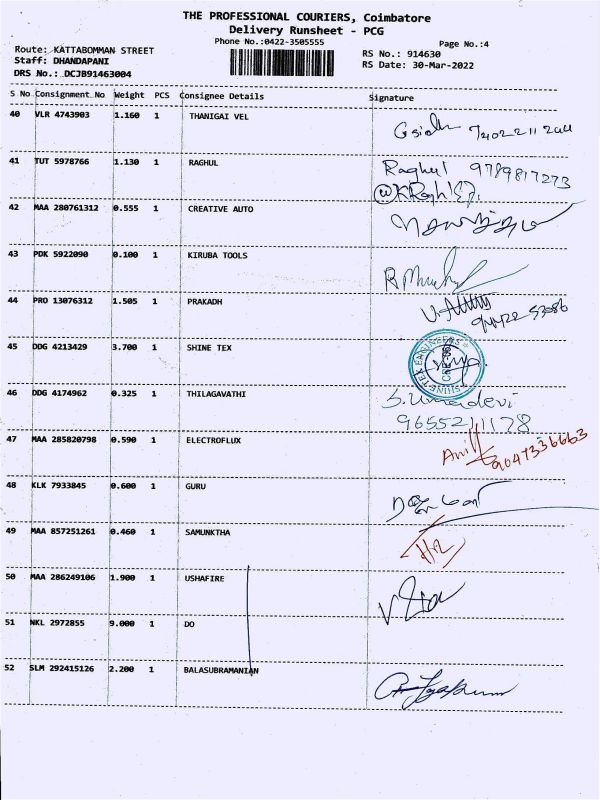 THE PROFESSIONAL COURIERS, Coimbatore
Delivery Runsheet - PCG
Phone No.:0422-3505555
Page No.:4
Route: KATTABOMMAN STREET
RS No.: 914630
Staff: DHANDAPANI
RS Date: 30-Mar-2022
DRS No.: DCJB91463004
S No Consignment No Weight PCS Consignee Details Signature
40 VLR 4743903 1.160 1 THANIGAI VEL
41 TUT 5978766 1.130 1 RAGHUL Raghul 9789817273
42 MAA 280761312 0.555 1 CREATIVE AUTO
43 PDK 5922090 0.100 1 KIRUBA TOOLS
44 PRO 13076312 1.505 1 PRAKADH
45 DDG 4213429 3.700 1 SHINE TEX
46 DDG 4174962 0.325 1 THILAGAVATHI S.Umadevi
9655211178
47 MAA 285820798 0.590 1 ELECTROFLUX 9047336663
48 KLK 7933845 0.600 1 GURU
49 MAA 857251261 0.460 1 SAMUNKTHA
50 MAA 286249106 1.900 1 USHAFIRE
51 NKL 2972855 9.000 1 DO
52 SLM 292415126 2.200 1 BALASUBRAMANIAN